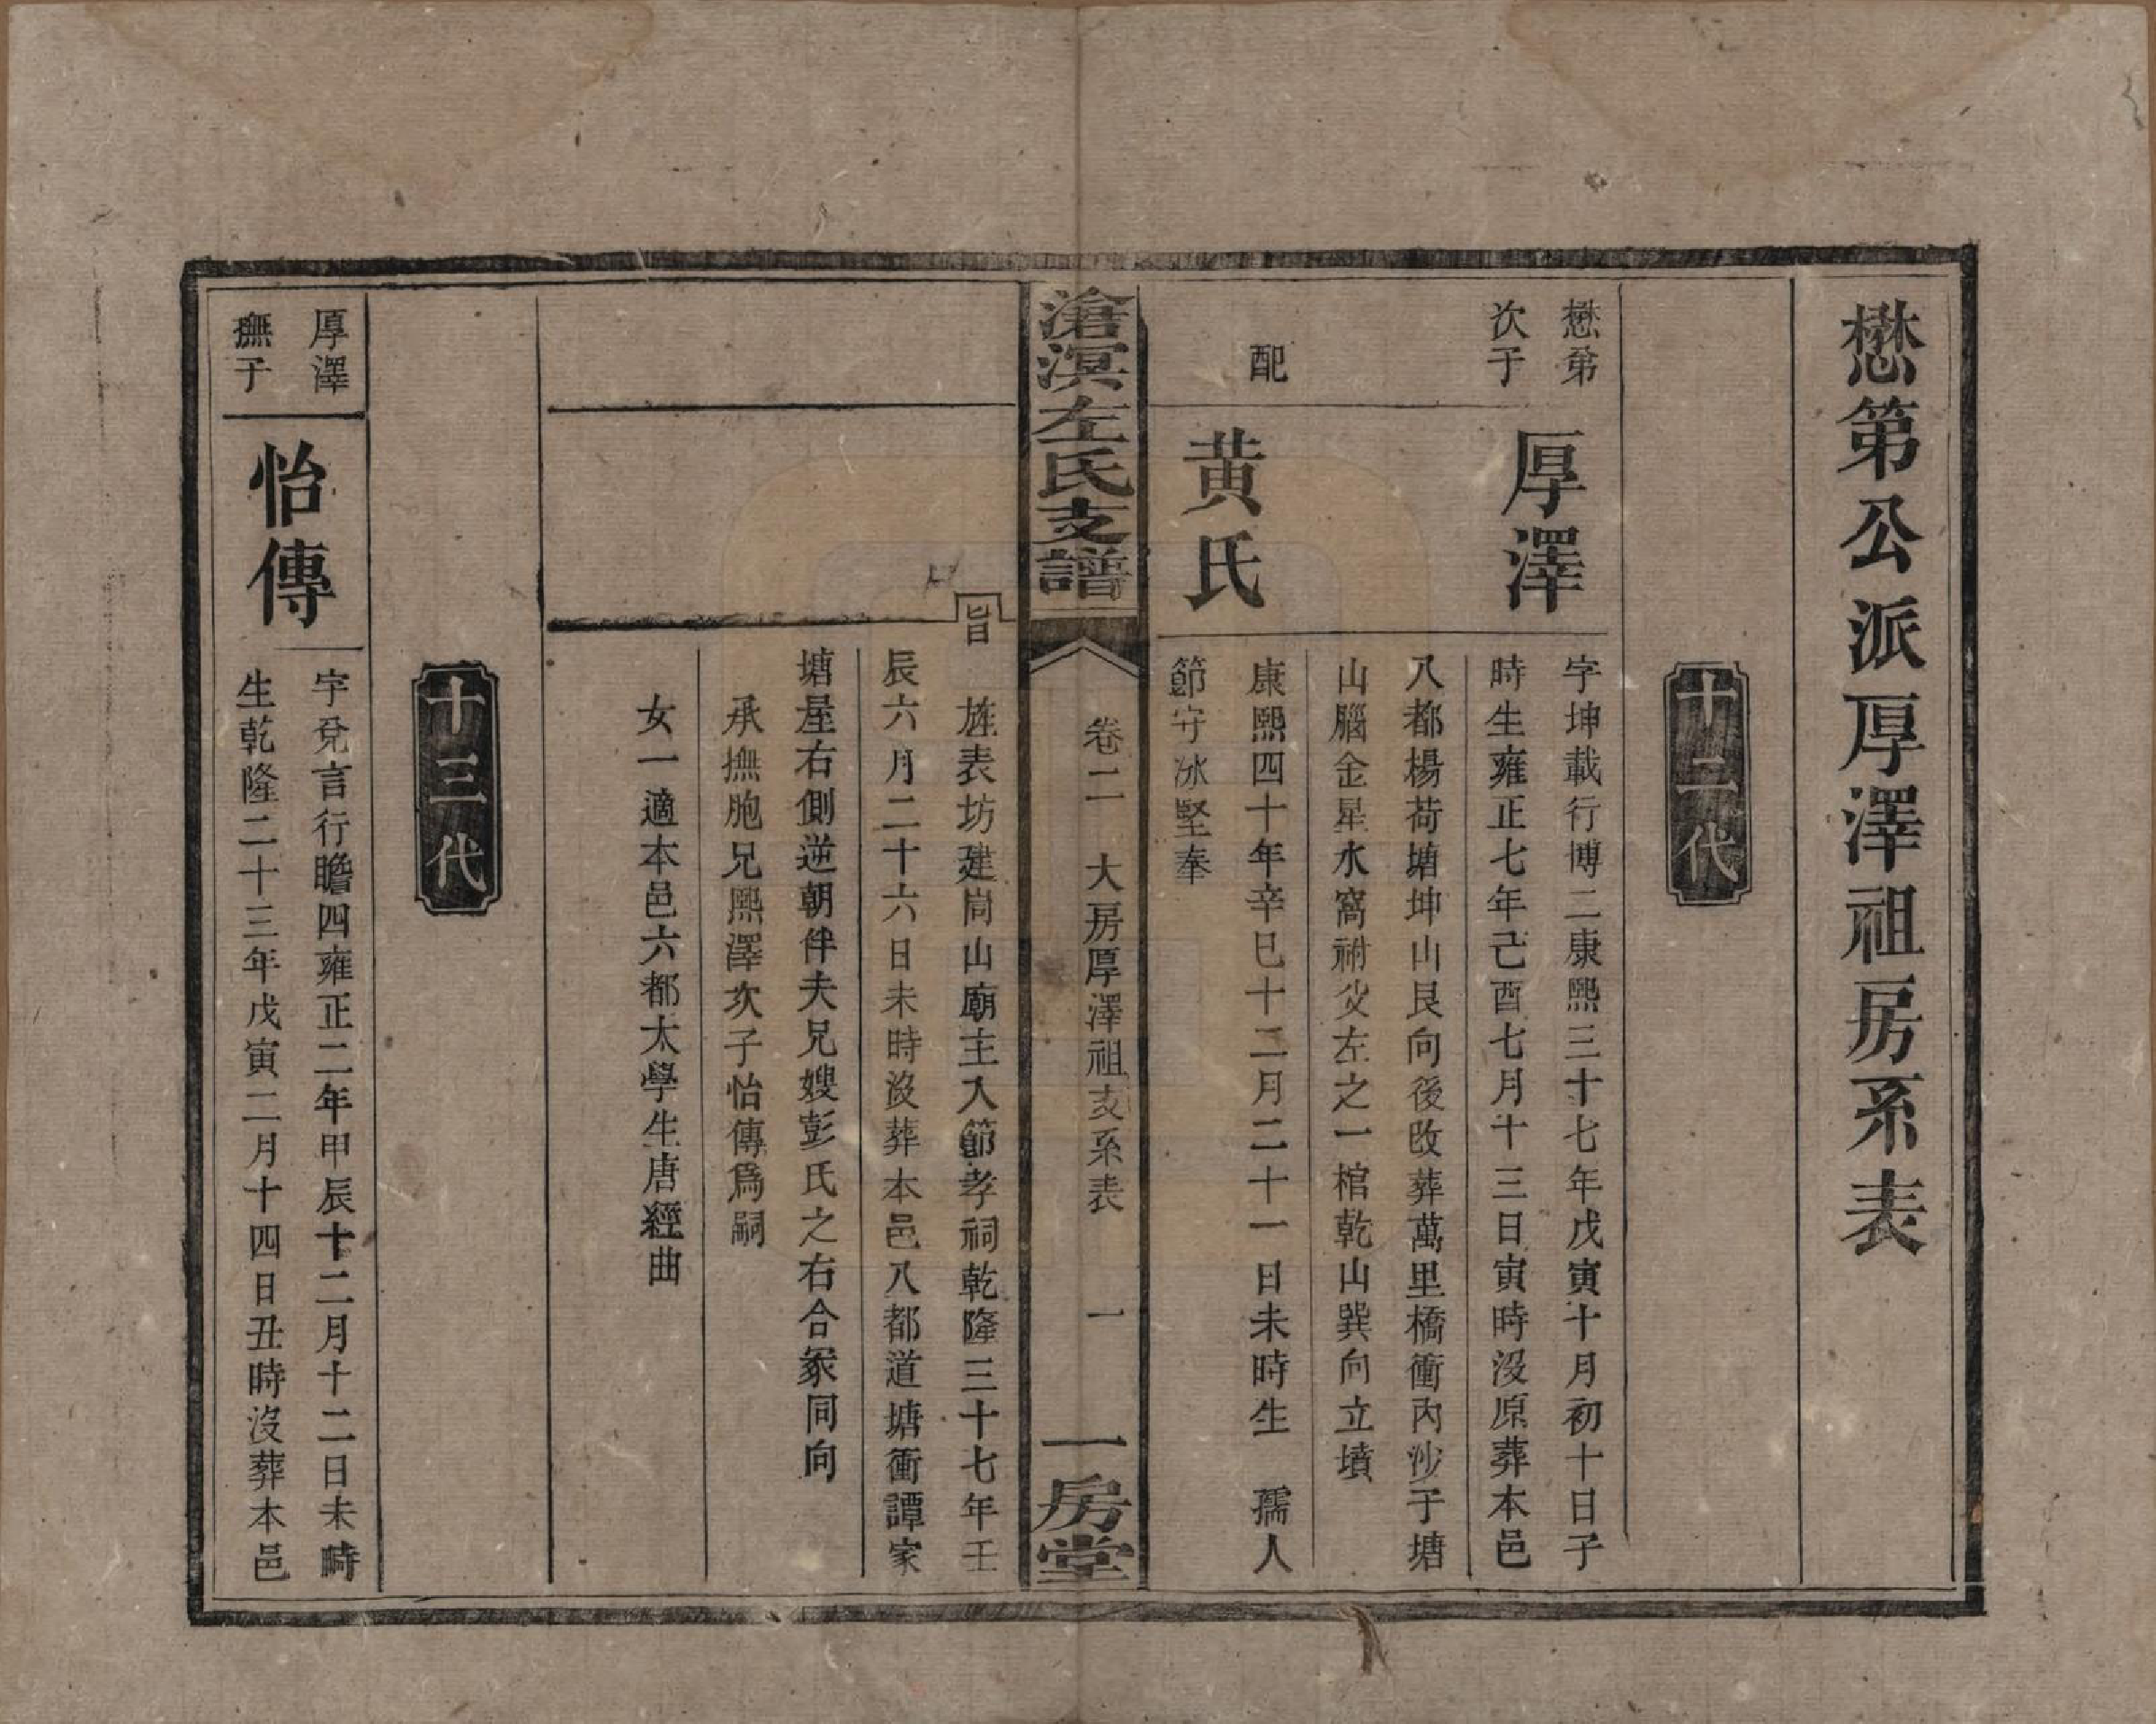 懋第公派厚澤祖房系表
十二代
懋第
次子
厚澤
字坤載行博二康熙三十七年戊寅十月初十日子
時生雍正七年己酉七月十三日寅時沒原葬本邑
八都楊荷塘坤山艮向後改葬萬里橋衝內沙子塘
山腦金星水窩祔父左之一棺乾山巽向立墳
配
黄氏
康熙四十年辛巳十二月二十一日未時生 孺人
節守冰堅奉
滄溟左氏支譜
卷二 大房厚澤祖支系表 一
一房堂
旨
旌表坊建崗山廟主入節孝祠乾隆三十七年壬
辰六月二十六日未時沒葬本邑八都道塘衝譚家
塘屋右側逆朝伴夫兄嫂彭氏之右合冢同向
承撫胞兄熙澤次子怡傳爲嗣
女一適本邑六都太學生唐經曲
十三代
厚澤
撫子
怡傳
字兌言行瞻四雍正二年甲辰十二月十二日未時
生乾隆二十三年戊寅二月十四日丑時沒葬本邑